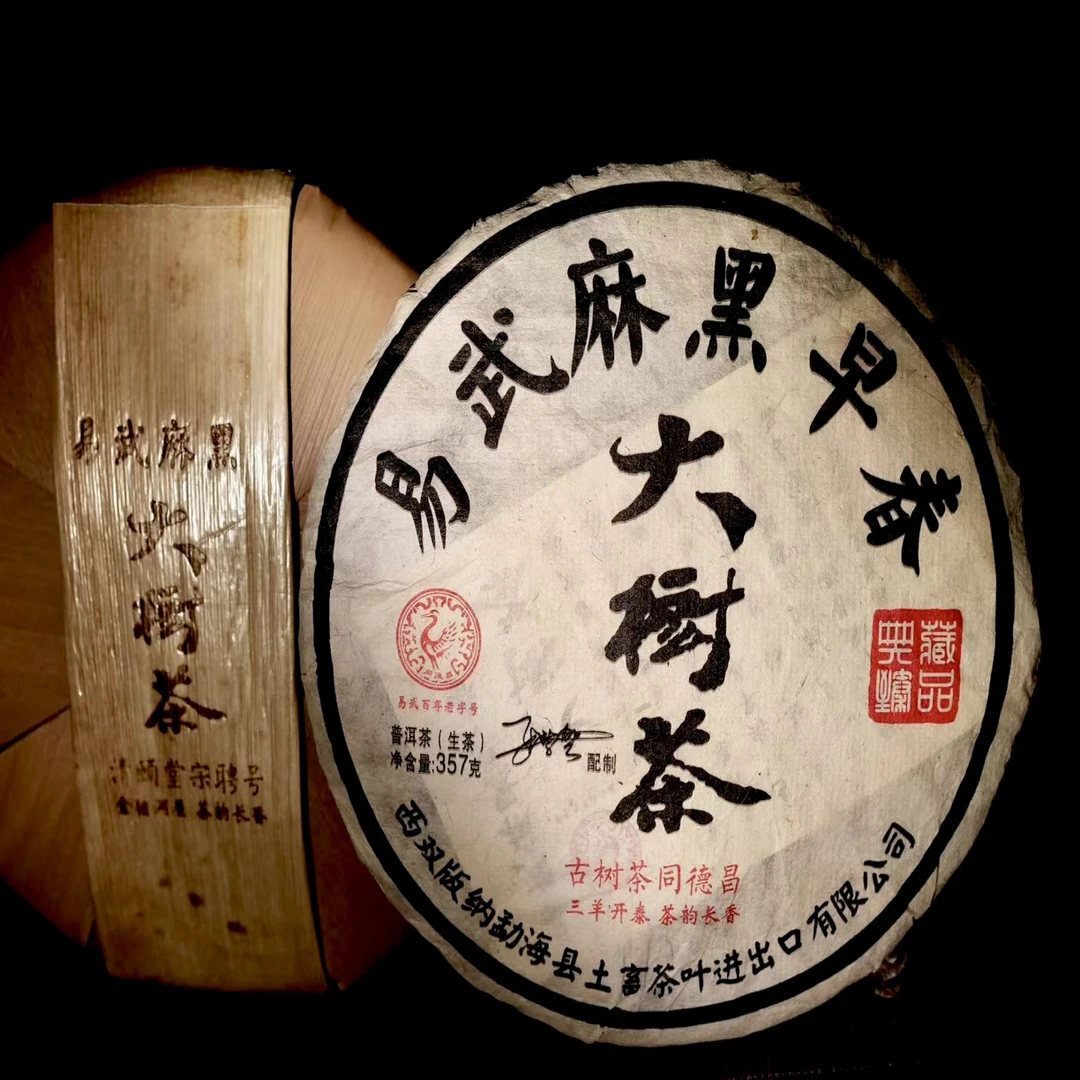 易武麻黑
大樹茶
清 堂宋聘号
茶韵长香
易武麻黑早春
大樹茶
易武百年老字号
普洱茶（生茶）
净含量:357克
配制
典藏
藏品
古树茶同德昌
三羊开泰 茶韵长香
西双版纳勐海县土畜茶叶进出口有限公司